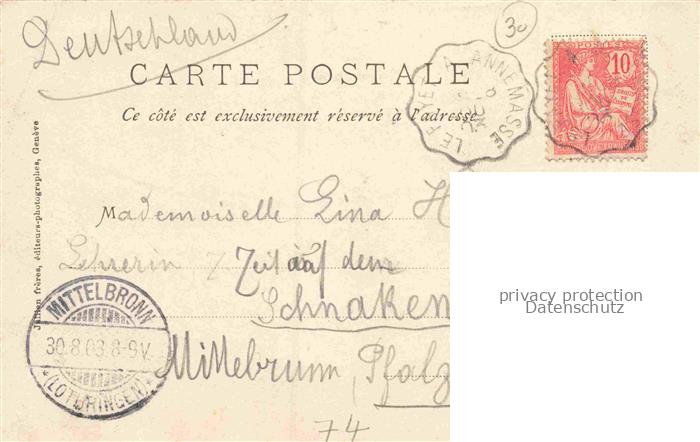 Deutschland
30
CARTE POSTALE
Ce côté est exclusivement réservé à l'adresse
LE FAYET À ANNEMASSE
POSTES
10
Jullien frères, éditeurs-photographes, Genève
Mademoiselle Lina H
Lehrerin / Zeit auf dem
Schnaken
Mittelbrunn, Pfalz
74
MITTELBRONN
30.8.03.8-9V.
(LOTHRINGEN)
privacy protection
Datenschutz